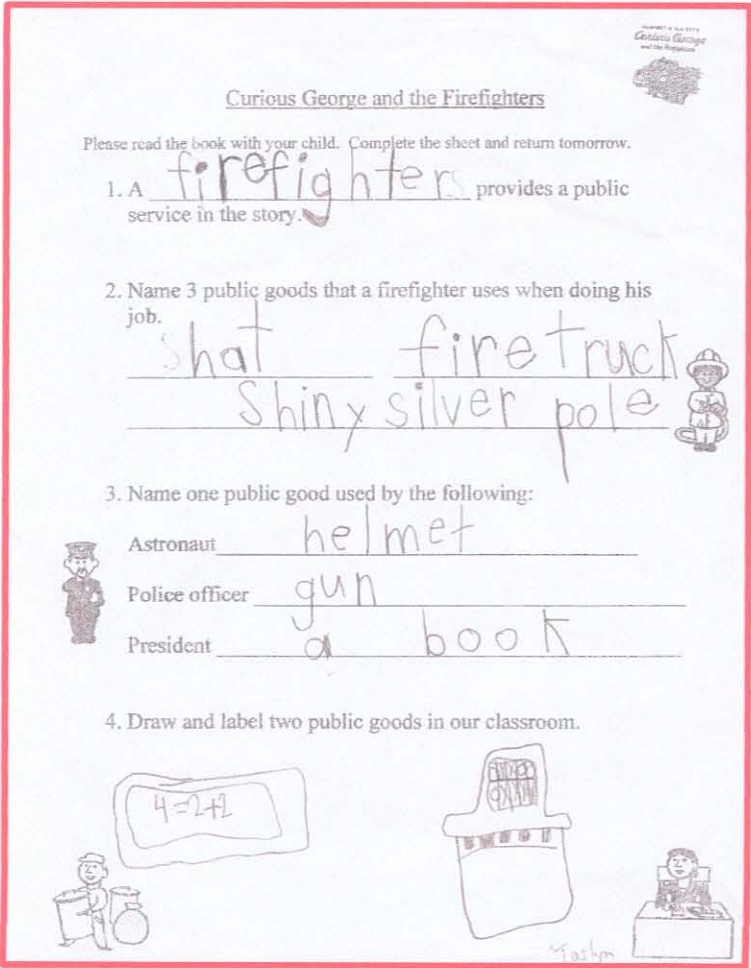 Curious George
and the Firefighters
Curious George and the Firefighters
Please read the book with your child. Complete the sheet and return tomorrow.
1. A firefighters provides a public
service in the story.
2. Name 3 public goods that a firefighter uses when doing his
job.
hat firetruck
Shiny silver pole
3. Name one public good used by the following:
Astronaut helmet
Police officer gun
President a book
4. Draw and label two public goods in our classroom.
4=2+2